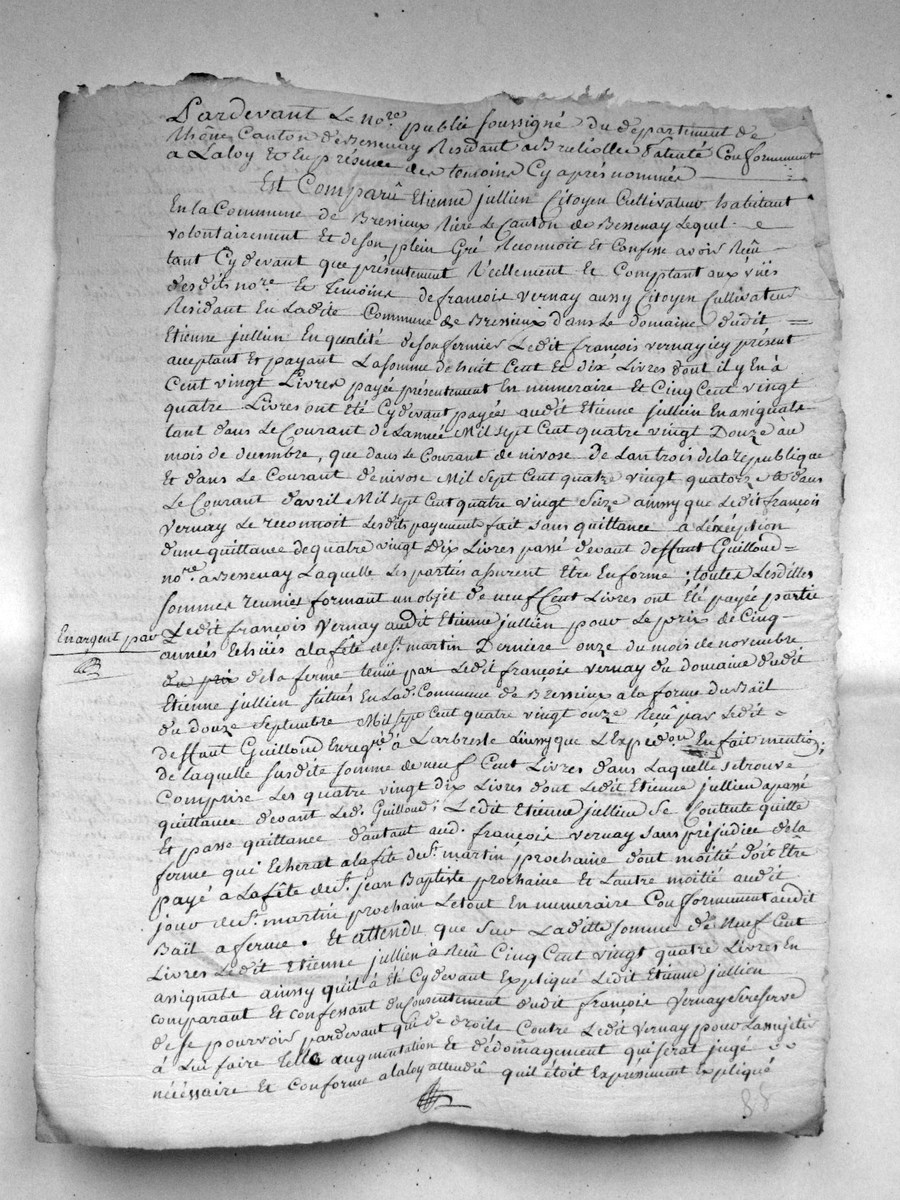 Pardevant Le no.re public soussigné du département de
Rhône Canton de Bessenay Residant a Brullolles Patenté Conformément
a La loy Et En présence des temoins Cy après nommés
Est Comparû Etienne jullien Citoyen Cultivateur habitant
En la Commune de Bressieux Riere Le Canton de Bessenay Lequel
volontairement Et de son plein Gré Reconnoit et Confesse avoir Reçû
tant Cy devant que présentement Réellement Et Comptant aux vüës
desdits no.re Et Temoins de françois Vernay aussy Citoyen Cultivateur
Residant En Ladite Commune de Bressieux dans Le domaine dudit =
Etienne jullien En qualité de son fermier Ledit françois Vernay icy présent
acceptant Et payant La somme de huit Cent Et dix Livres dont il y En à
Cent vingt Livres payé présentement En numeraire Et Cinq Cent vingt
quatre Livres ont été Cy devant payés audit Etienne jullien En assignats
tant dans Le Courant de L'année Mil sept Cent quatre vingt Douze au
mois de decembre, que dans Le Courant de nivose de L'an trois de la république
Et dans Le Courant de nivose Mil Sept Cent quatre vingt quatorze Et dans
Le Courant d'avril Mil sept Cent quatre vingt Seize ainsy que Ledit françois
Vernay Le reconnoit Lesdits payement fait sans quittance à L'éxéption
d'une quittance de quatre vingt Dix Livres passé devant deffunt Guilloud =
no.re a Bessenay Laquelle Les parties assurent Être En forme ; toutes Lesdittes
sommes reunies formant un objet de neuf Cent Livres ont été payée partie
En argent par
Ledit françois Vernay audit Etienne jullien pour Le prix de Cinq
années Echüës a la fête de St. martin Derniere onze du mois de novembre
du prix de la ferme tenüë par Ledit françois Vernay du domaine dudit
Etienne jullien situés En Lad. Commune de Bressieux a la forme du Bail
du douze Septembre Mil Sept Cent quatre vingt onze Reçû par Ledit =
deffunt Guilloud Enregré à L'arbresle ainsy que L'Expedon En fait mention ;
de laquelle susdite somme de neuf Cent Livres dans Laquelle se trouve
Comprise Les quatre vingt dix Livres dont Ledit Etienne jullien a passé
quittance devant Led. Guilloud ; Ledit Etienne jullien Se Contente quitte
Et passe quittance d'autant aud. françois Vernay sans préjudice de la
ferme qui Echerat a la fête de St. martin prochaine dont moitié doit Être
payé à La fête de St. jean Baptiste prochaine Et L'autre moitié audit
jour de St. martin prochain Le tout En numeraire Conformément audit
Bail a ferme. Et attendu que sur La ditte Somme de Neuf Cent
Livres Ledit Etienne jullien à Reçû Cinq Cent vingt quatre Livres En
assignats ainsy qu'il à été Cy devant Expliqué Ledit Etienne jullien
comparant Et confessant du Consentement dudit françois Vernay Se réserve
de se pourvoir pardevant qui de droits Contre Ledit Vernay pour L'assujetir
à Lui faire Telle augmentation Et dédomagement qui serat jugé
nécéssaire Et Conforme a la loy attendû qu'il étoit Expressément Expliqué
88